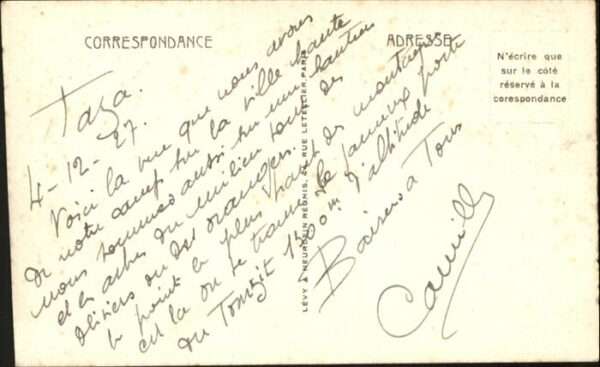 CORRESPONDANCE
ADRESSE
N'écrire que
sur le côté
réservé à la
corespondance
LÉVY & NEURDEIN RÉUNIS, 44, RUE LETELLIER, PARIS
Taza.
4-12-27.
Voici la vue que nous avons
de notre camp sur la ville haute
nous sommes aussi sur une hauteur
et les arbres du milieu sont des
oliviers ou des orangers.
le point le plus haut des montagnes
est la ou se trouve le fameux poste
du Tomzit 1500m d'altitude
Baisers a Tous
Camille